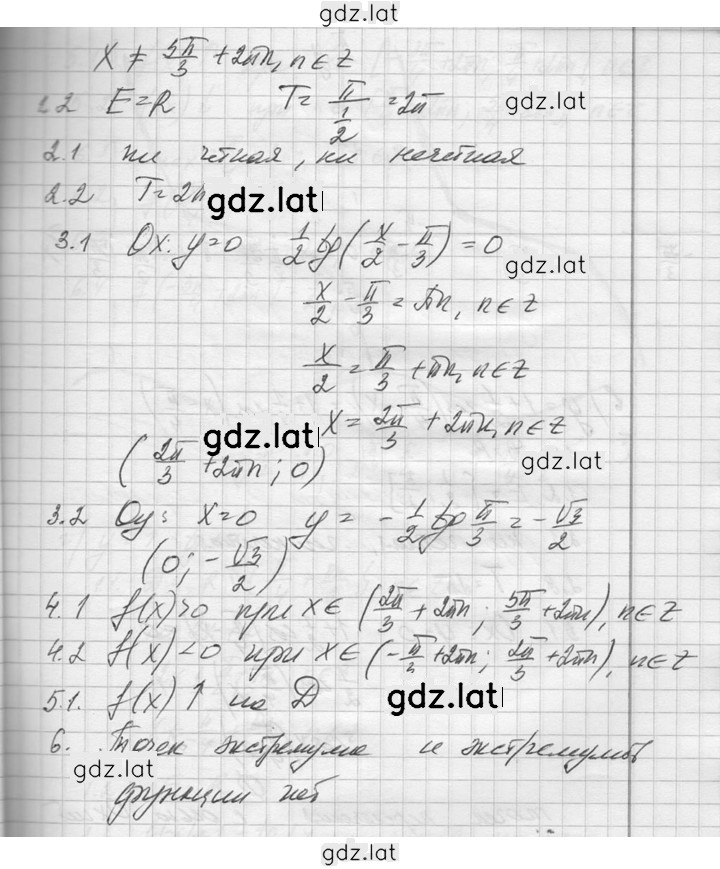 gdz.lat
x ≠ 5π/3 + 2πn, n∈Z
1.2 E=R T = π/(1/2) = 2π gdz.lat
2.1 ни чётная, ни нечётная
2.2 T=2π gdz.lat
3.1 Ox: y=0 1/2 tg(x/2 - π/3) = 0 gdz.lat
x/2 - π/3 = πn, n∈Z
x/2 = π/3 + πn, n∈Z
gdz.lat x = 2π/3 + 2πn, n∈Z
(2π/3 + 2πn; 0) gdz.lat
3.2 Oy: x=0 y = -1/2 tg π/3 = -√3/2
(0; -√3/2)
4.1 f(x)>0 при x∈(2π/3 + 2πn; 5π/3 + 2πn), n∈Z
4.2 f(x)<0 при x∈(-π/3 + 2πn; 2π/3 + 2πn), n∈Z
5.1. f(x)↑ на D gdz.lat
6. Точек экстремума и экстремумов
gdz.lat
функции нет
gdz.lat